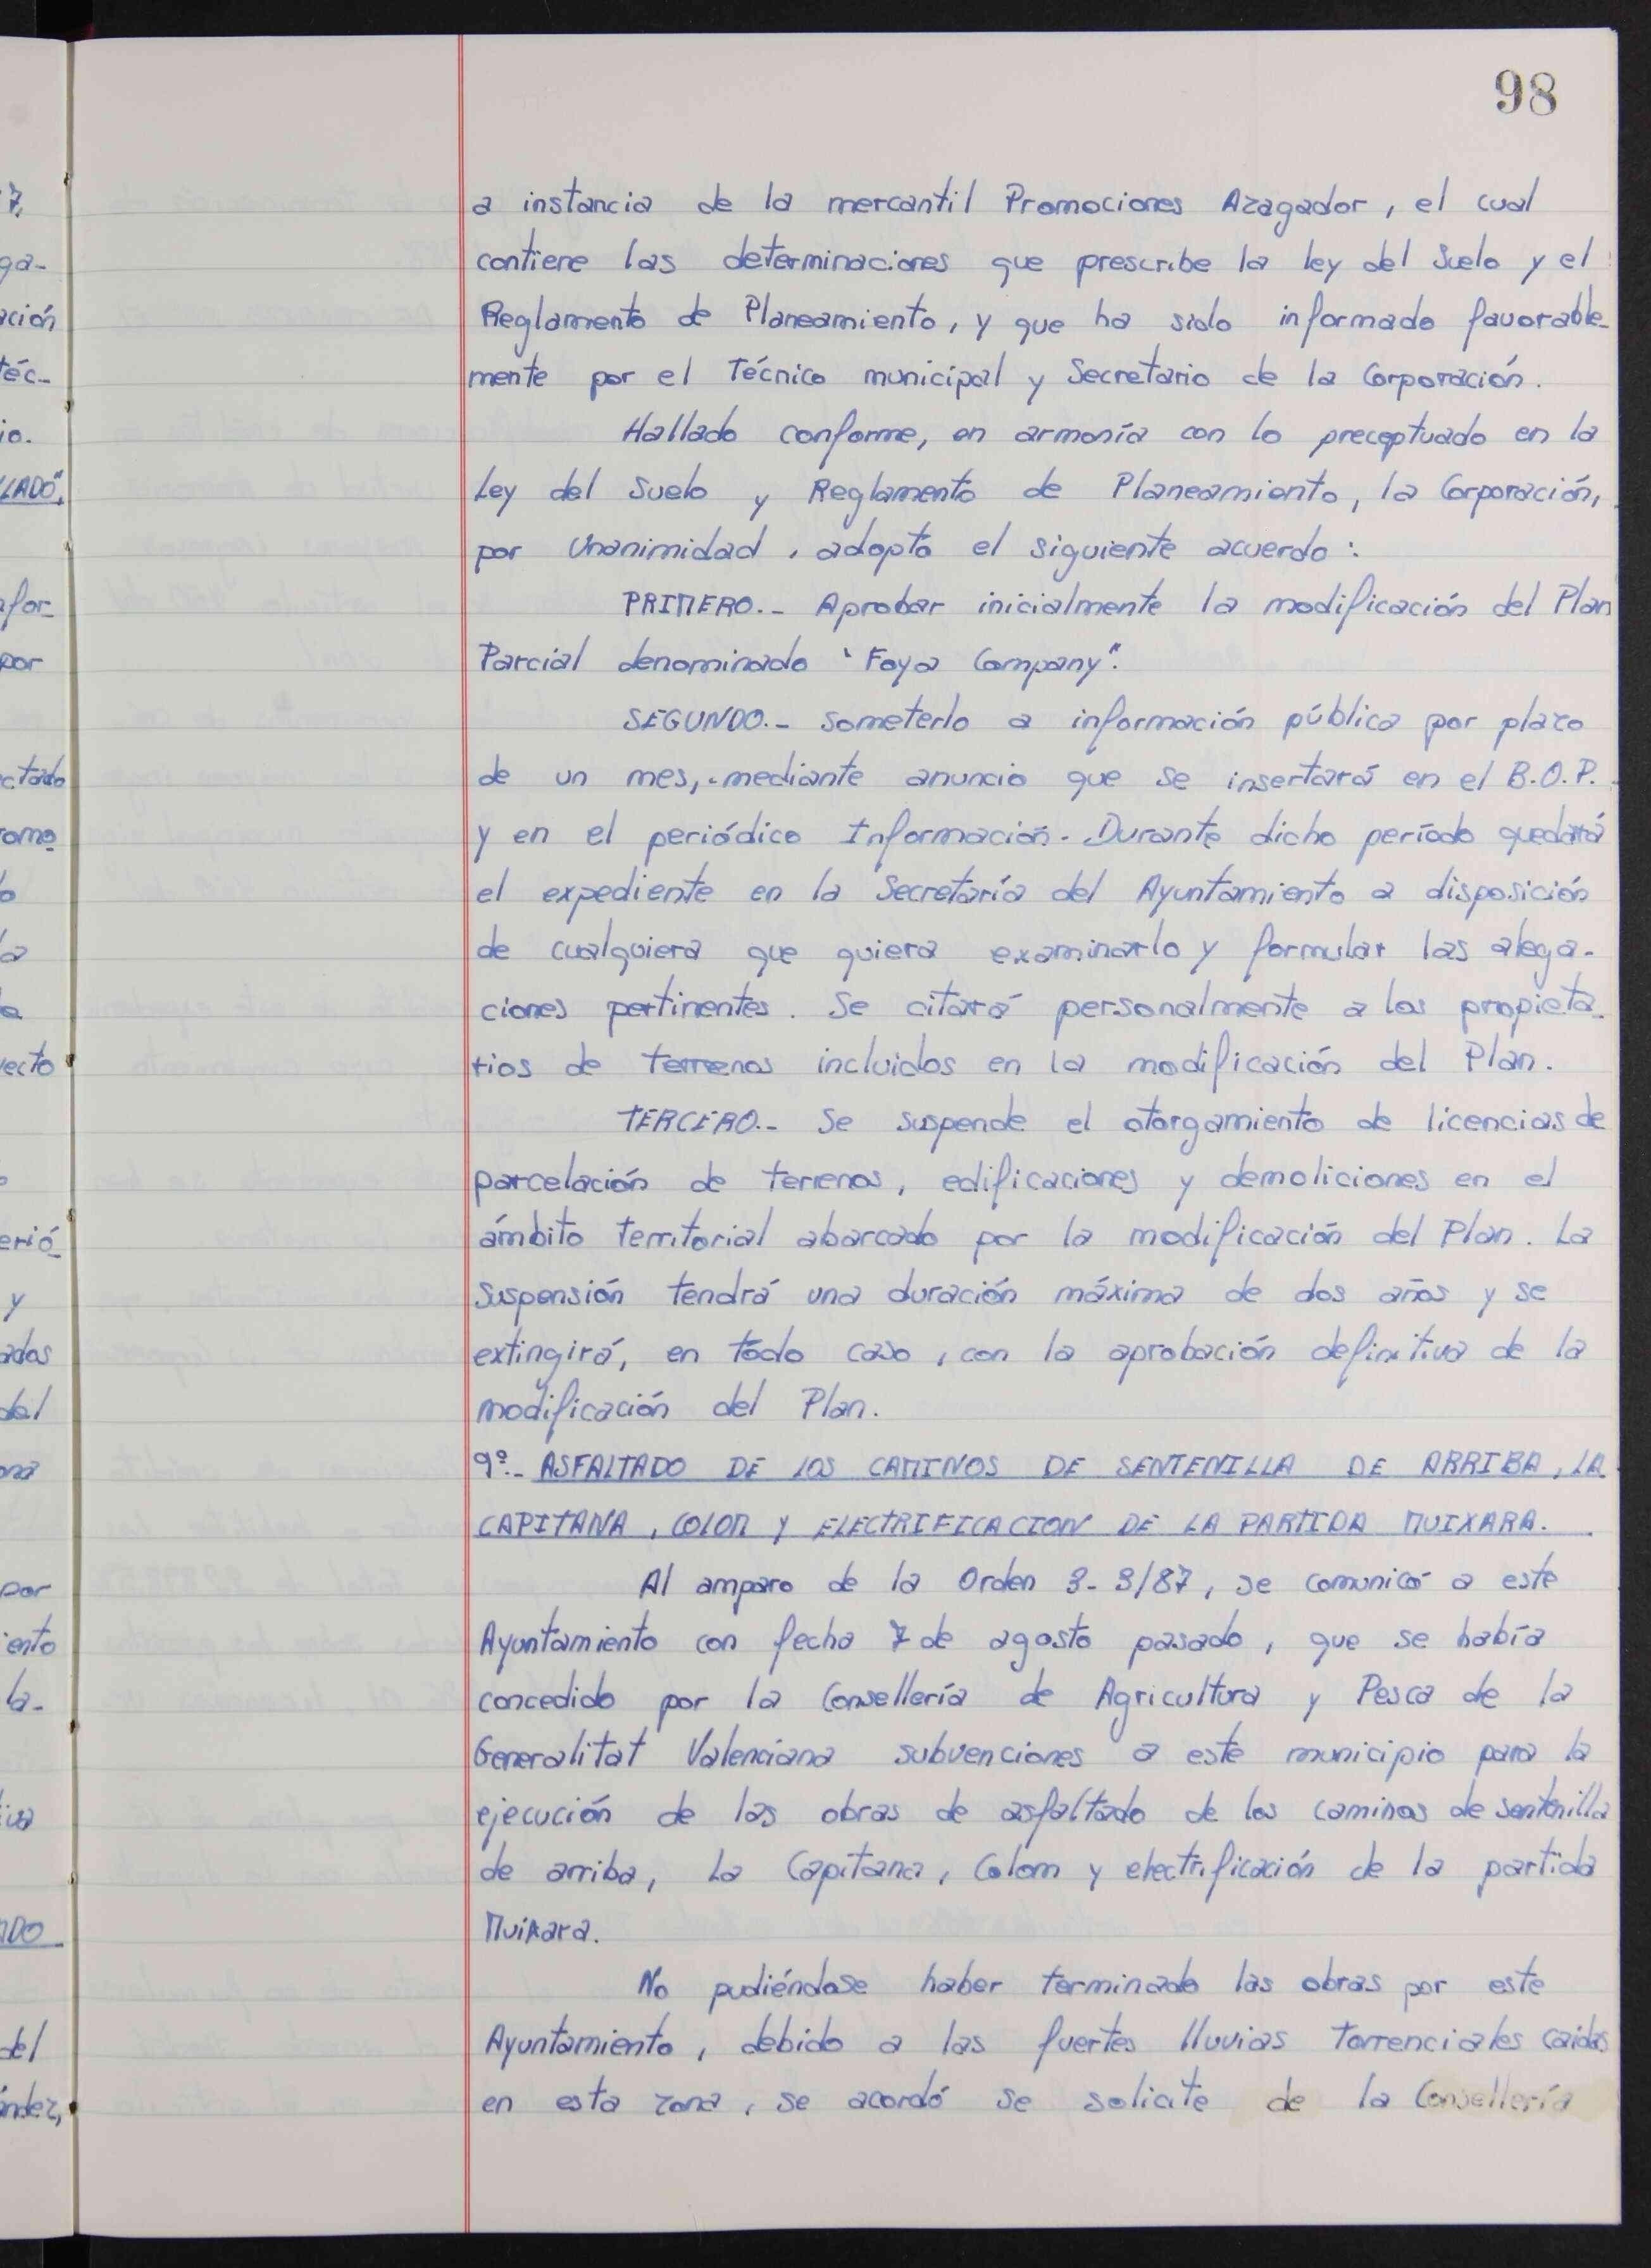 98
a instancia de la mercantil Promociones Azagador, el cual
contiene las determinaciones que prescribe la ley del Suelo y el
Reglamento de Planeamiento, y que ha sido informado favorable-
mente por el Técnico municipal y Secretario de la Corporación.
Hallado conforme, en armonía con lo preceptuado en la
Ley del Suelo y Reglamento de Planeamiento, la Corporación,
por Unanimidad, adopto el siguiente acuerdo:
PRIMERO.- Aprobar inicialmente la modificación del Plan
Parcial denominado "Foya Company".
SEGUNDO.- Someterlo a información pública por plazo
de un mes, mediante anuncio que se insertará en el B.O.P.
y en el periódico Información. Durante dicho período quedará
el expediente en la Secretaría del Ayuntamiento a disposición
de cualquiera que quiera examinarlo y formular las alega-
ciones pertinentes. Se citará personalmente a los propieta-
rios de terrenos incluidos en la modificación del Plan.
TERCERO.- Se suspende el otorgamiento de licencias de
parcelación de terrenos, edificaciones y demoliciones en el
ámbito territorial abarcado por la modificación del Plan. La
suspensión tendrá una duración máxima de dos años y se
extingirá, en todo caso, con la aprobación definitiva de la
modificación del Plan.
9º.- ASFALTADO DE LOS CAMINOS DE SENTENILLA DE ARRIBA, LA
CAPITANA, COLOM Y ELECTRIFICACION DE LA PARTIDA MUIXARA.
Al amparo de la Orden 3-3/87, se comunicó a este
Ayuntamiento con fecha 7 de agosto pasado, que se había
concedido por la Consellería de Agricultura y Pesca de la
Generalitat Valenciana subvenciones a este municipio para la
ejecución de las obras de asfaltado de los caminos de sentenilla
de arriba, La Capitana, Colom y electrificación de la partida
Muixara.
No pudiéndose haber terminado las obras por este
Ayuntamiento, debido a las fuertes lluvias torrenciales caidas
en esta zona, se acordó se solicite de la Consellería